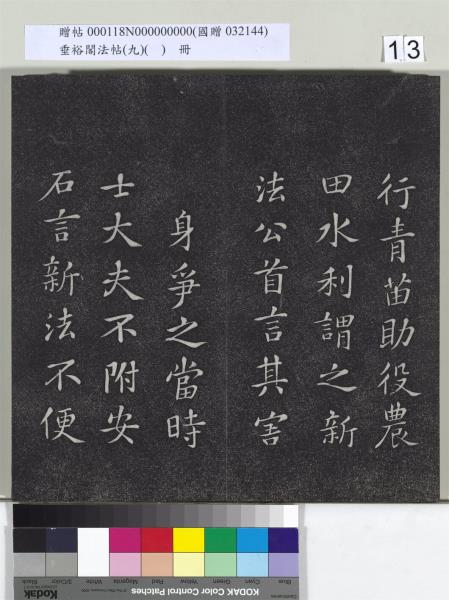 贈帖 000118N000000000(國贈 032144)
垂裕閣法帖(九)( ) 冊
13
行青苗助役農
田水利謂之新
法公首言其害
身爭之當時
士大夫不附安
石言新法不便
Blue Cyan Green Yellow Red Magenta White 3/Color Black
Kodak
KODAK Color Control Patches